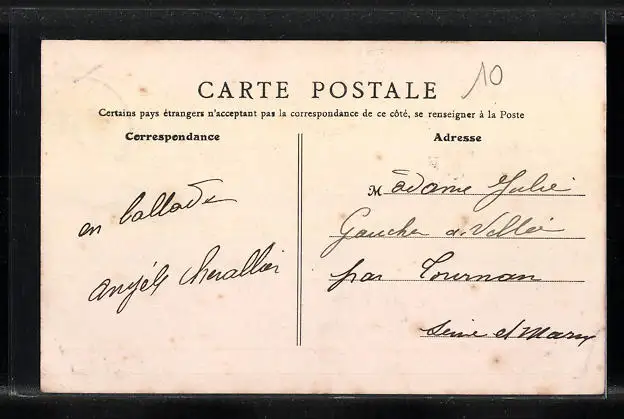 CARTE POSTALE
10
Certains pays étrangers n'acceptant pas la correspondance de ce côté, se renseigner à la Poste
Correspondance
Adresse
en ballade
angèle Chevallier
Madame Julie
Gaucher a
par Tournan
Seine et Marne